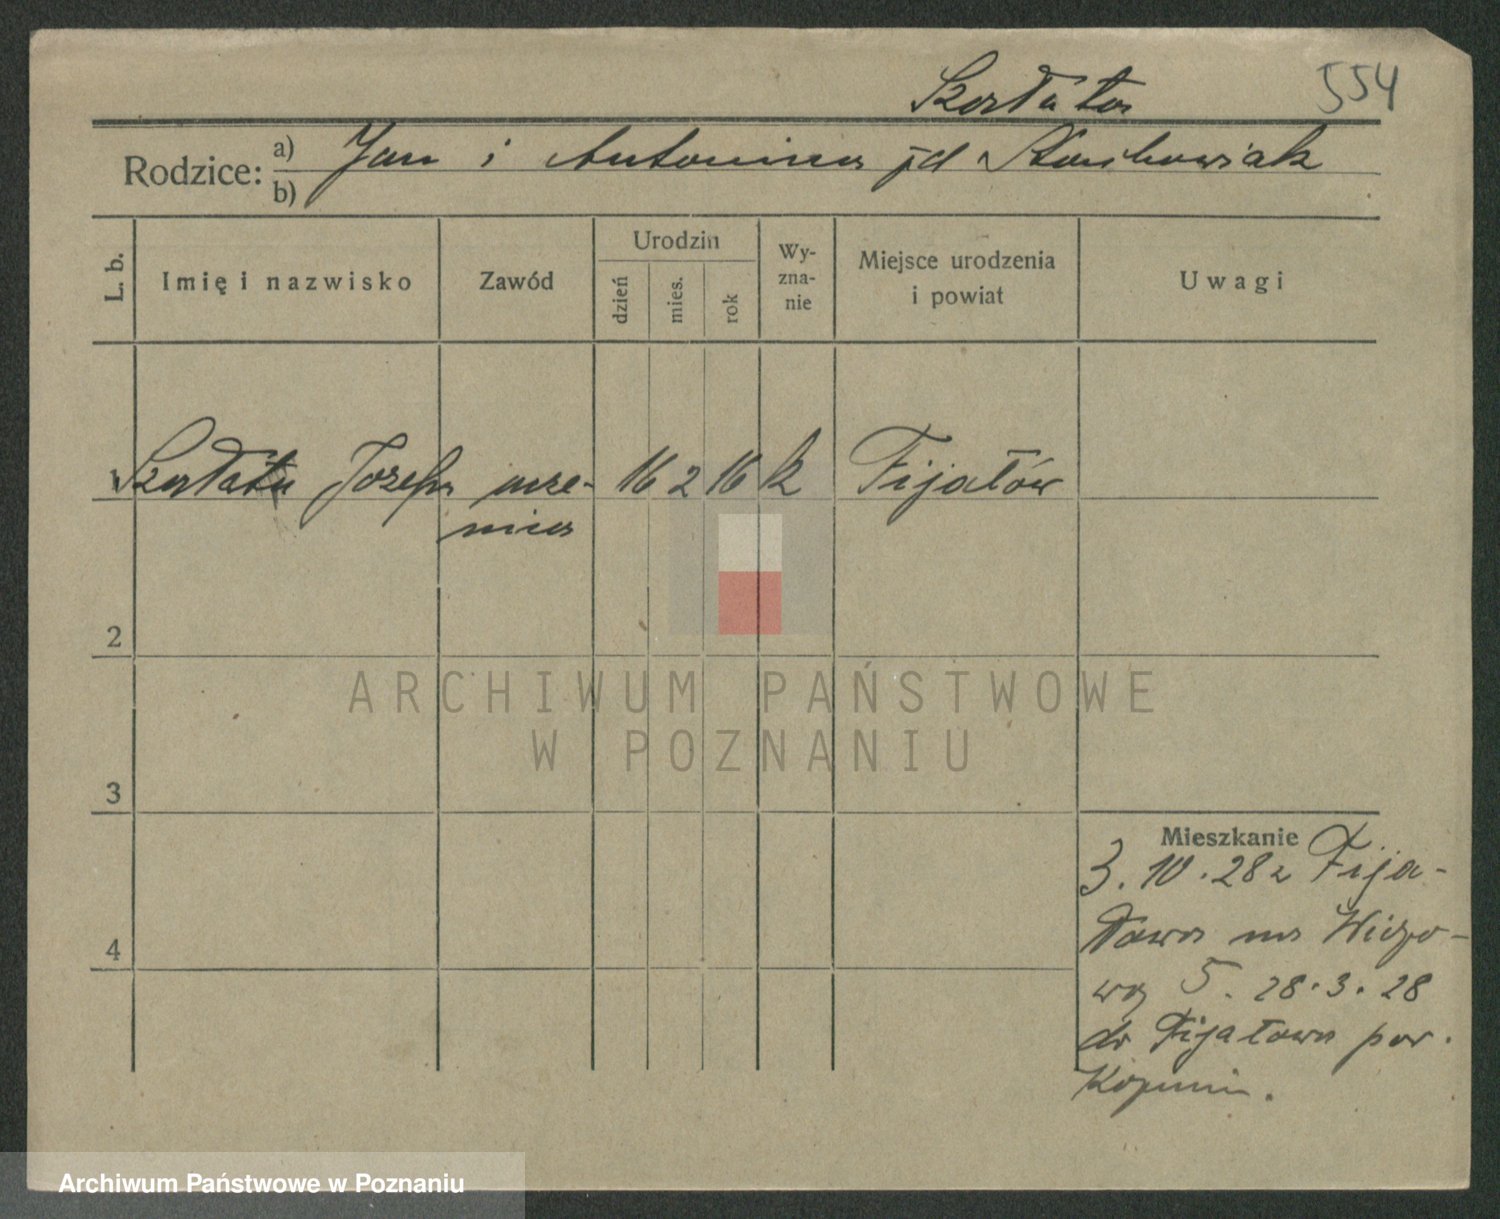 554
Rodzice: a) Jan i Antonina
b)
L. b.
Imię i nazwisko
Zawód
Urodzin
dzień
mies.
rok
Wy-
zna-
nie
Miejsce urodzenia
i powiat
Uwagi
Józefa ucze- 16 2 16 k Fijałów
nica
2
3
4
Mieszkanie
3.10.28 z Fija-
łowa na
5. 28.3.28
do Fijałowa pow.
ARCHIWUM PAŃSTWOWE
W POZNANIU
Archiwum Państwowe w Poznaniu